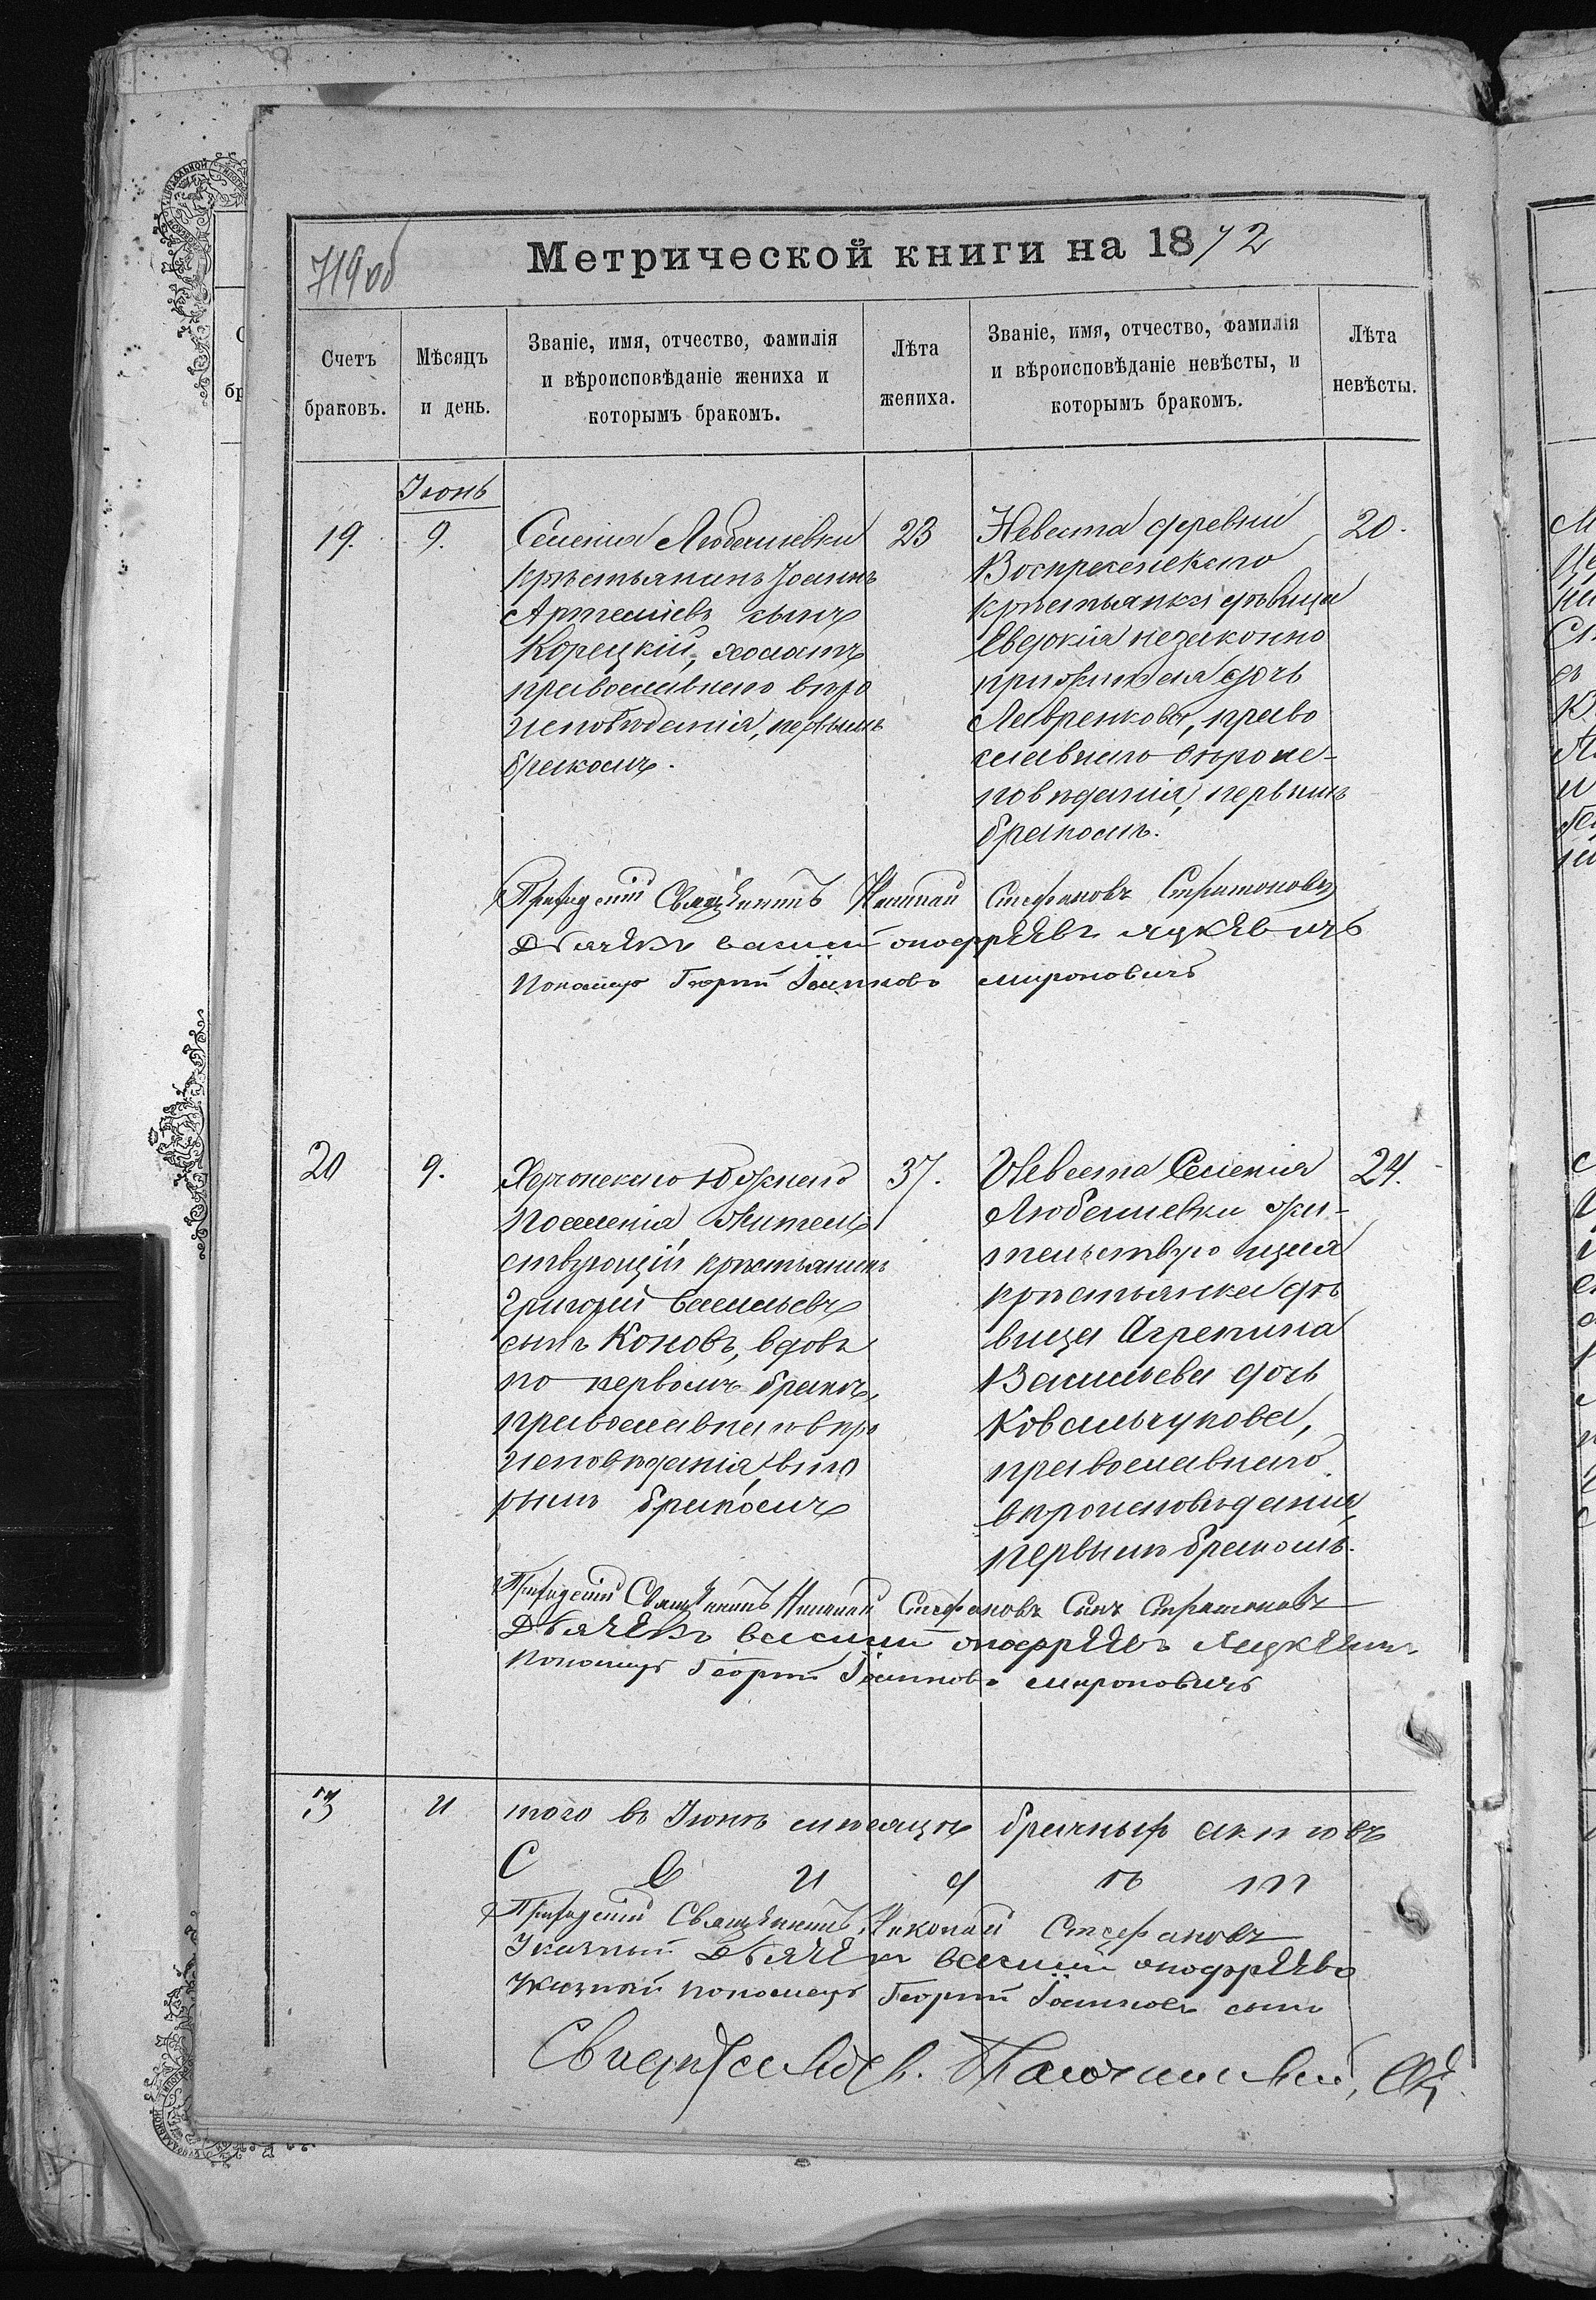 719 об
Метрической книги на 1872
Счетъ браковъ.
Мѣсяцъ и день.
Званіе, имя, отчество, фамилія
и вѣроисповѣданіе жениха и
которымъ бракомъ.
Лѣта жениха.
Званіе, имя, отчество, фамилія
и вѣроисповѣданіе невѣсты, и
которымъ бракомъ.
Лѣта невѣсты.
Іюнь
19. 9.
Селенія Любашевки
крѣстьянинъ Іоаннъ
Артемievъ сынъ
Корецкій, холостъ
православнаго вѣро
исповѣданія, первымъ
бракомъ.
23
Невеста деревни
Воскресенскаго
крѣстьянка дѣвица
Евдокія незаконно
прижитая дочь
Лавренкова, право
славнаго вѣроис-
повѣданія, первымъ
бракомъ.
20.
Приходскій Священникъ Николай Стефановъ Стратоновъ
Дьячекъ Василий Онофрѣевъ Яцкевичъ
Пономарь Георгий Іоанновъ Мироновичъ
20 9.
Херсонскаго Южнаго
поселенія, житель
ствующій крѣстьянинъ
Григорий Васильевъ
сынъ Коновъ, вдовъ
по первомъ бракѣ,
православнаго вѣро
исповѣданія, вто
рымъ бракомъ
37.
Невеста Селенія
Любашевки жи-
тельствующая
крѣстьянка дѣ
вица Агрепина
Васильева дочь
Ковальчукова,
православнаго
вѣроисповѣданія
первымъ бракомъ.
24.
Приходскій Священникъ Николай Стефановъ Сынъ Стратоновъ
Дьячекъ Василий Онофрѣевъ Яцкевичъ
Пономарь Георгий Іоанновъ Мироновичъ
3 Итого въ Іюнѣ мѣсяцѣ брачныхъ актовъ
Свидѣт
Приходскій Священникъ Николай Стефановъ
Указный Дьячекъ Василий Онофрѣевъ
Указный Пономарь Георгий Іоанновъ сынъ